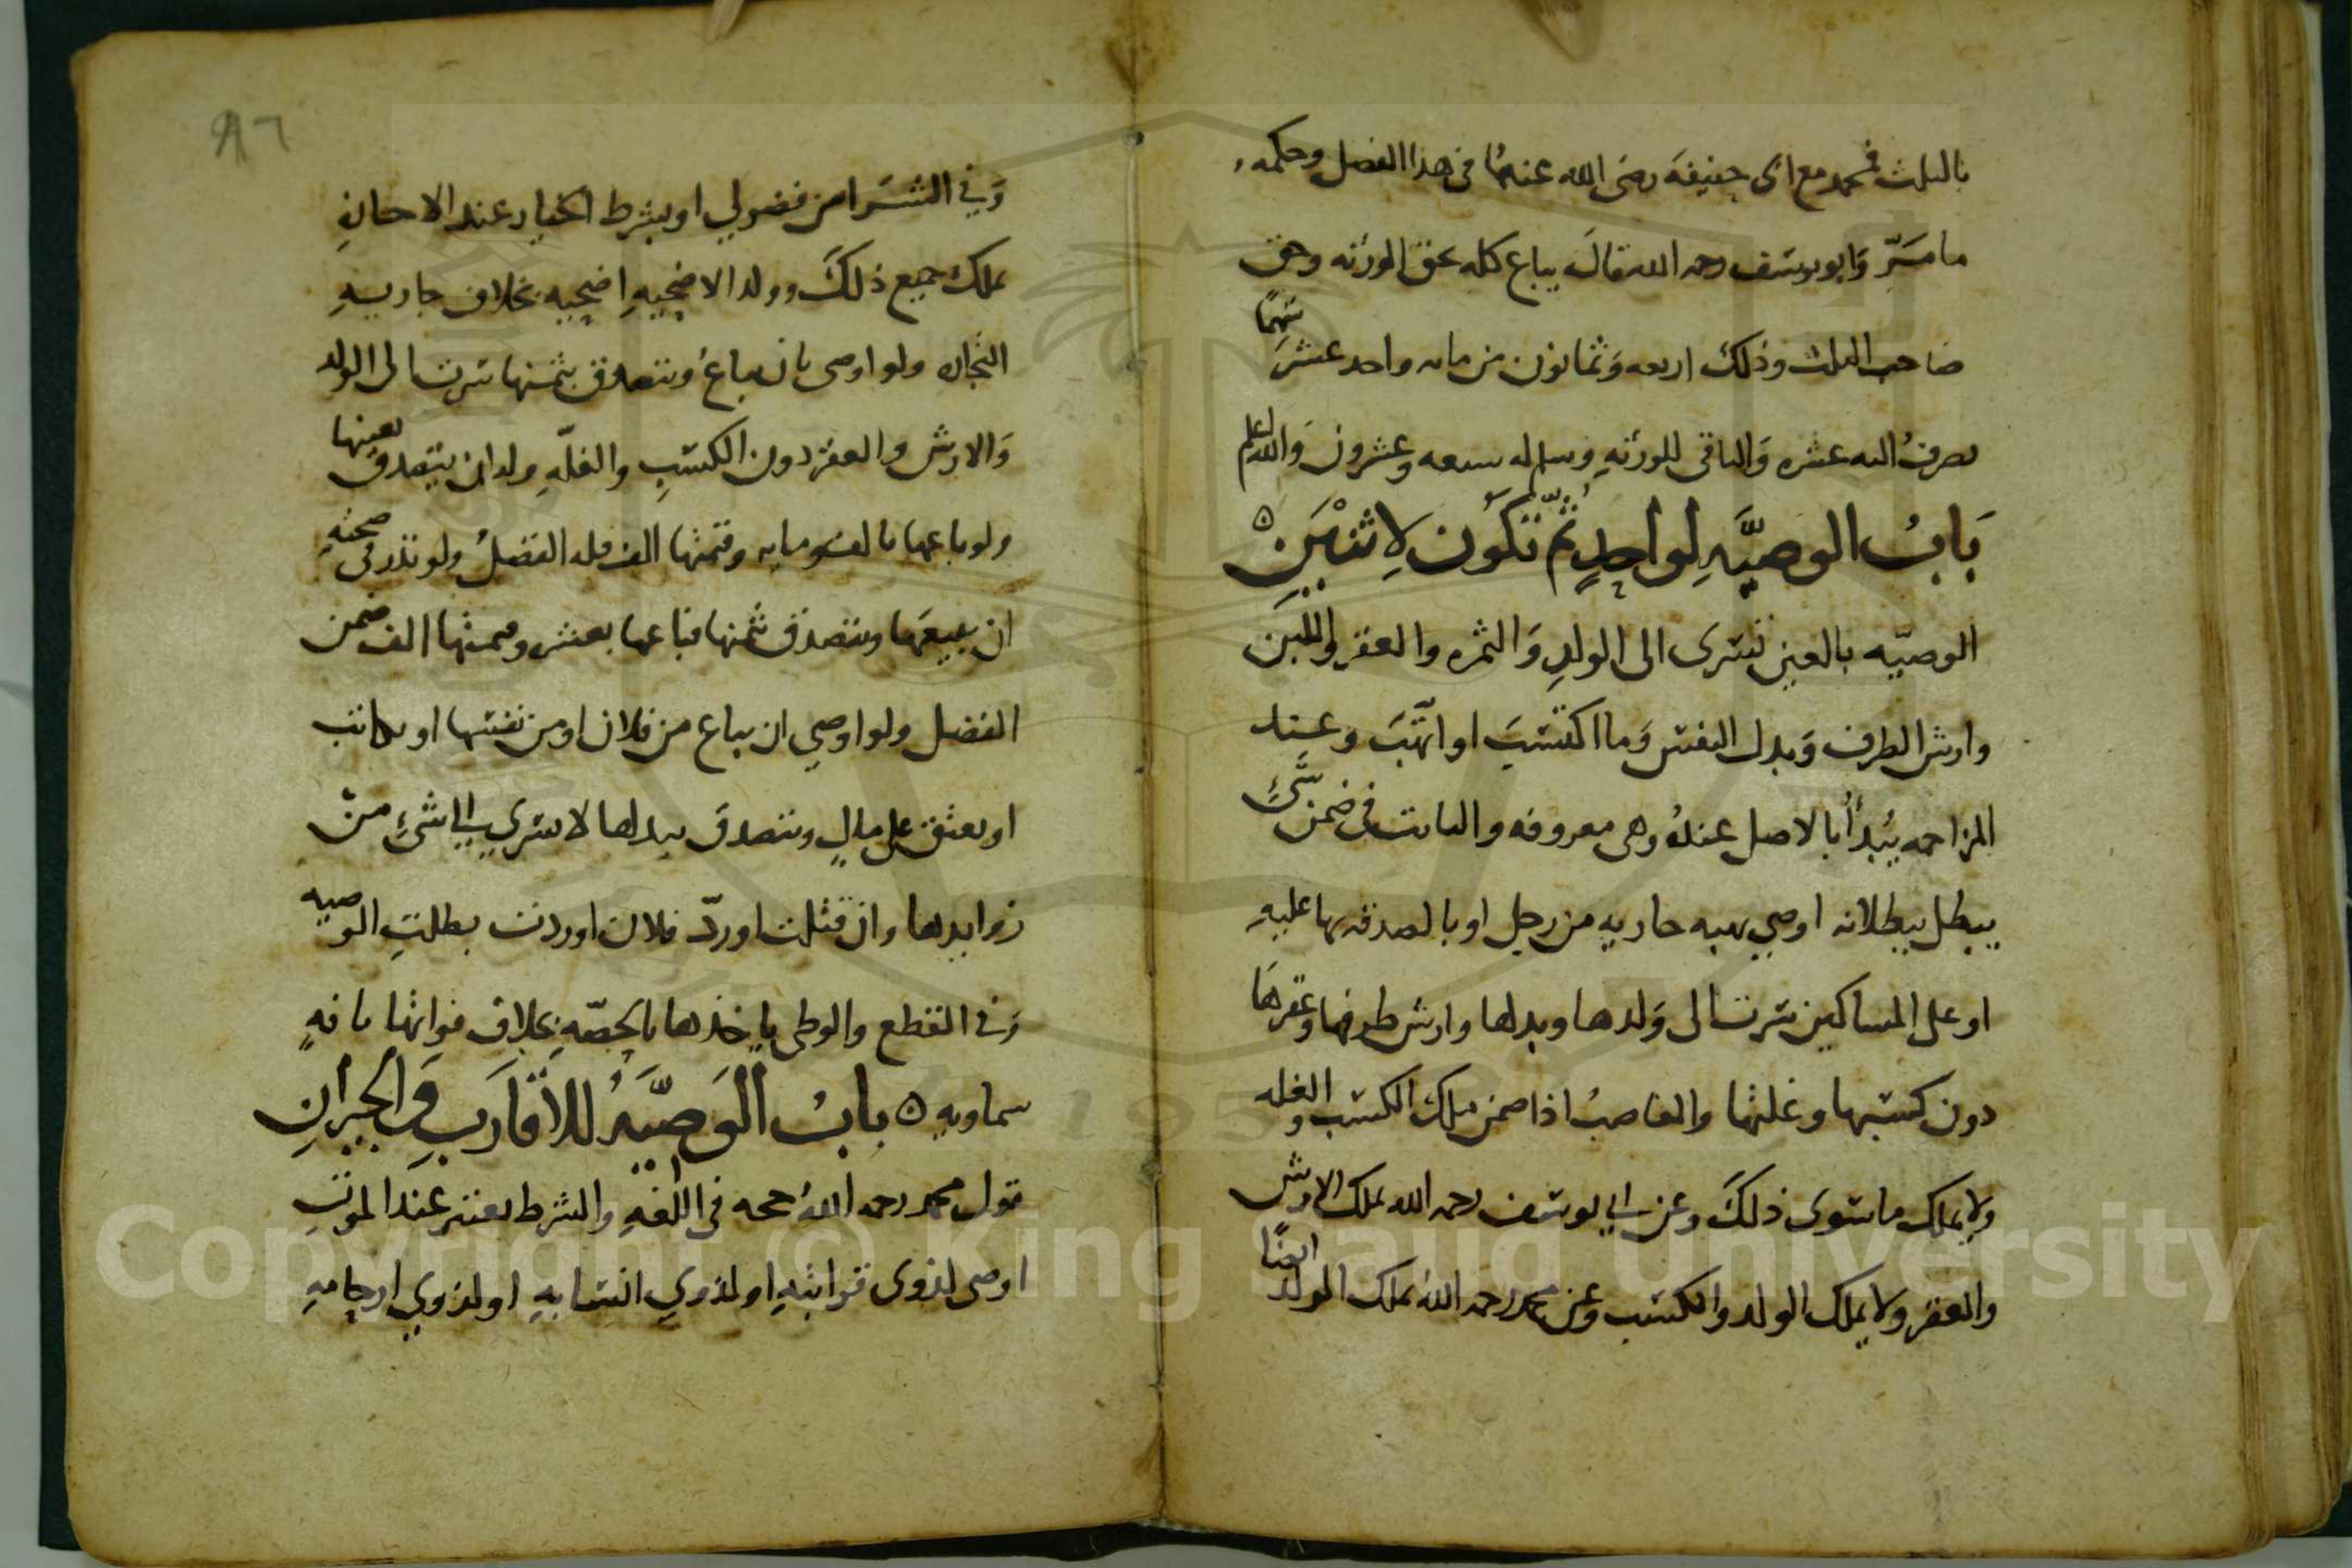 بالثلث فمحمد مع ابى حنيفة رضى الله عنهما فى هذا الفصل وحكمه
ما مر وابو يوسف رحمه الله قال يباع كله بحق الورثه وحق
صاحب الثلث وذلك اربعه وثمانون من مايه واحد عشر سهما
يصرف اليه عشره والباقى للورثه وسلم له سبعه وعشرون والله اعلم
باب الوصيه لواحد ثم تكون لاثنين
الوصيه بالعين تسرى الى الولد والثمره والعقر واللبن
وارش الطرف وبدل النفس وما اكتسب او اتهب وعند
المزاحمه يبدأ بالاصل عنده وهى معروفه والثابت فى ضمن شىء
يبطل ببطلانه اوصى بهبه جاريه من رجل او بالصدقه بها عليه
او على المساكين سرت الى ولدها وبدلها وارش طرفها وعقرها
دون كسبها وغلتها والغاصب اذا ضمن ملك الكسب والغله
ولا يملك ما سوى ذلك وعن ابى يوسف رحمه الله يملك الارش
والعقر ولا يملك الولد والكسب وعن محمد رحمه الله يملك الولد ايضا
٨٦
وفى الشرا من فضولي او بشرط الخيار عند الاجازه
يملك جميع ذلك وولد الاضحيه اضحيه بخلاف جاريه
التجاره ولو اوصى بان يباع ويتصدق بثمنها سرت الى الولد
والارش والعقر دون الكسب والغله وله ان يتصدق بعينها
ولو باعها بالف ومايه وقيمتها الف فله الفضل ولو نذر فى صحته
ان يبيعها ويتصدق بثمنها فباعها بعشر وقيمتها الف ضمن
الفضل ولو اوصى ان يباع من فلان او من نفسها او يكاتب
او يعتق على مال ويتصدق ببدلها لا يسري الى شىء من
زوايدها وان قتلت او ردّ فلان او ردت بطلت الوصيه
وفى القطع والوطى ياخذها بالحصه بخلاف فواتها بافه
سماويه باب الوصيه للاقارب والجيران
قول محمد رحمه الله حجه فى اللغه والشرط يعتبر عند الموت
اوصى لذوى قرابته او لذوي انسابه او لذوي ارحامه
Copyright © King Saud University
195